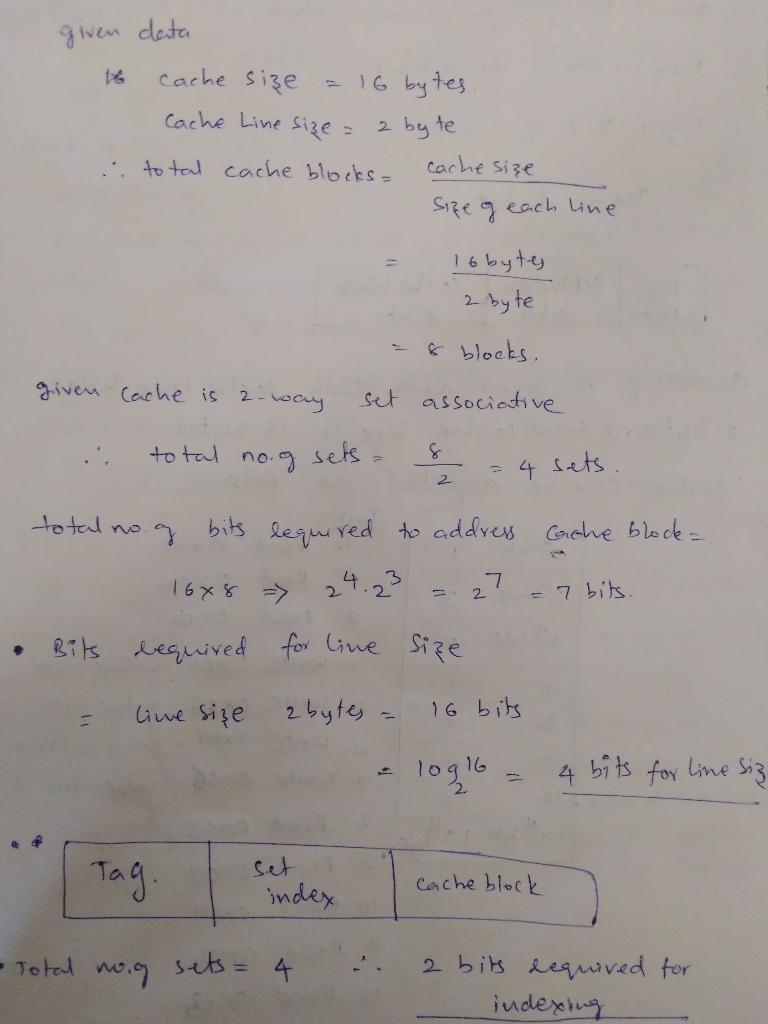 given data
cache size = 16 bytes.
Cache Line size = 2 byte
∴ total cache blocks = cache size
size of each line
= 16 bytes
2 byte
= 8 blocks.
given cache is 2-way set associative
∴ total no. of sets = 8/2 = 4 sets.
total no. of bits required to address cache block =
16 x 8 ⇒ 2^4 . 2^3 = 2^7 = 7 bits.
• Bits required for line size
= line size 2 bytes = 16 bits
= log_2 16 = 4 bits for line siz
Tag. set index cache block
• Total no. of sets = 4 ∴ 2 bits required for
indexing